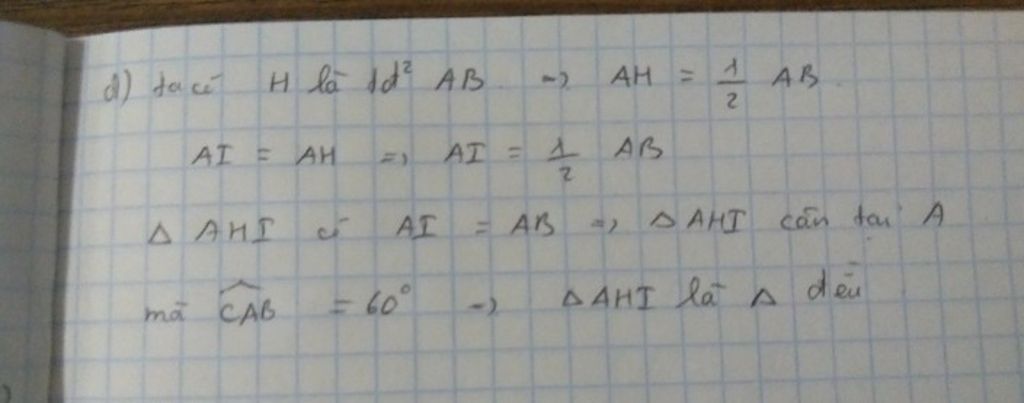 d) ta có H là tđ² AB → AH = 1/2 AB
AI = AH => AI = 1/2 AB
Δ AHI có AI = AB => Δ AHI cân tại A
mà CAB = 60° → Δ AHI là Δ đều